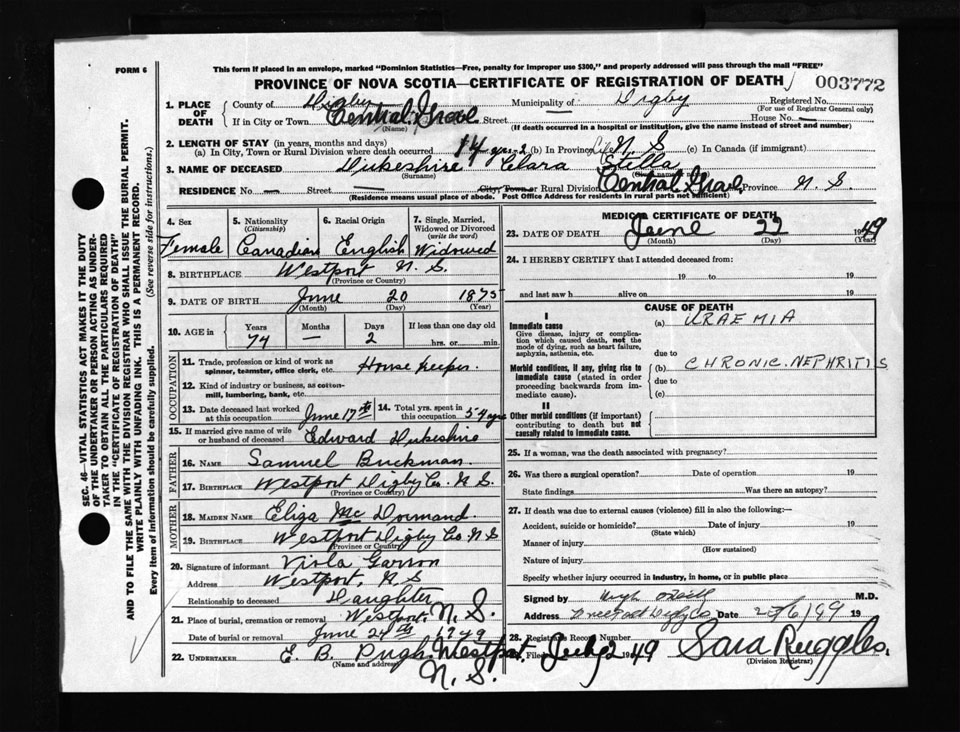 FORM 6
This form if placed in an envelope, marked "Dominion Statistics—Free, penalty for improper use $300," and properly addressed will pass through the mail "FREE"
PROVINCE OF NOVA SCOTIA—CERTIFICATE OF REGISTRATION OF DEATH
003772
1. PLACE OF DEATH
County of Digby Municipality of Digby Registered No.
(For use of Registrar General only)
If in City or Town Central Grove Street — House No. —
(Name) (If death occurred in a hospital or institution, give the name instead of street and number)
2. LENGTH OF STAY (in years, months and days)
(a) In City, Town or Rural Division where death occurred 14 yrs-2 (b) In Province Life N. S (c) In Canada (if immigrant)
3. NAME OF DECEASED Dukeshire Clara Stella
(Surname)
RESIDENCE No. — Street — City, Town or Rural Division Central Grove, Province N. S.
(Residence means usual place of abode. Post Office Address for residents in rural parts not sufficient)
4. Sex
Female
5. Nationality
(Citizenship)
Canadian
6. Racial Origin
English
7. Single, Married, Widowed or Divorced
(write the word)
Widowed
8. BIRTHPLACE Westport N. S.
(Province or Country)
9. DATE OF BIRTH June 20 1875
(Month) (Day) (Year)
10. AGE in
Years Months Days If less than one day old
74 — 2 hrs. or min.
OCCUPATION
11. Trade, profession or kind of work as spinner, teamster, office clerk, etc. House keeper.
12. Kind of industry or business, as cotton-mill, lumbering, bank, etc.
13. Date deceased last worked at this occupation June 17th 14. Total yrs. spent in this occupation 54 yrs
15. If married give name of wife or husband of deceased Edward Dukeshire
FATHER
16. NAME Samuel Buckman.
17. BIRTHPLACE Westport Digby Co. N. S.
(Province or Country)
MOTHER
18. MAIDEN NAME Eliza Mc Dormand
19. BIRTHPLACE Westport Digby Co. N S
(Province or Country)
20. Signature of informant Viola Garron
Address Westport, N. S
Relationship to deceased Daughter
21. Place of burial, cremation or removal Westport. N. S.
Date of burial or removal June 24th 1949
22. UNDERTAKER E. B. Pugh. Westport.
(Name and address)
N. S.
MEDICAL CERTIFICATE OF DEATH
23. DATE OF DEATH June 22 1949
(Month) (Day) (Year)
24. I HEREBY CERTIFY that I attended deceased from:
19 to 19
and last saw h alive on 19
CAUSE OF DEATH
I
Immediate cause
Give disease, injury or complication which caused death, not the mode of dying, such as heart failure, asphyxia, asthenia, etc.
(a) URAEMIA
due to
Morbid conditions, if any, giving rise to immediate cause (stated in order proceeding backwards from immediate cause).
(b) CHRONIC. NEPHRITIS
due to
(c)
II
Other morbid conditions (if important) contributing to death but not causally related to immediate cause.
25. If a woman, was the death associated with pregnancy?
26. Was there a surgical operation? Date of operation 19
State findings Was there an autopsy?
27. If death was due to external causes (violence) fill in also the following:—
Accident, suicide or homicide? Date of injury 19
(State which)
Manner of injury
(How sustained)
Nature of injury
Specify whether injury occurred in industry, in home, or in public place
Signed by M.D.
Address Digby Co Date 19
28. Registrars Record Number
Filed July 2 1949 Sara Ruggles.
(Division Registrar)
SEC. 46—VITAL STATISTICS ACT MAKES IT THE DUTY
OF THE UNDERTAKER OR PERSON ACTING AS UNDER-
TAKER TO OBTAIN ALL THE PARTICULARS REQUIRED
IN THE "CERTIFICATE OF REGISTRATION OF DEATH"
AND TO FILE THE SAME WITH THE DIVISION REGISTRAR WHO SHALL ISSUE THE BURIAL PERMIT.
WRITE PLAINLY WITH UNFADING INK. THIS IS A PERMANENT RECORD.
Every item of information should be carefully supplied. (See reverse side for instructions.)